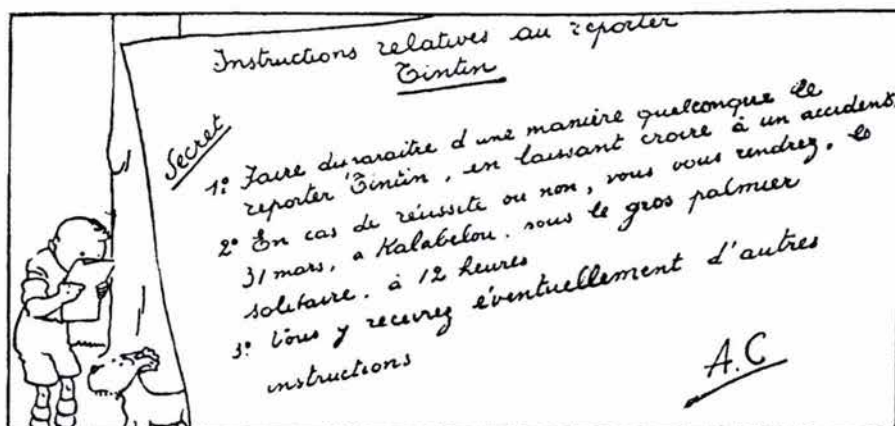 Instructions relatives au reporter
Tintin
Secret
1º Faire disparaître d'une manière quelconque le
reporter Tintin, en laissant croire à un accident.
2º En cas de réussite ou non, vous vous rendrez, le
31 mars, a Kalabelou. sous le gros palmier
solitaire. à 12 heures
3º Vous y recevrez éventuellement d'autres
instructions
A.C